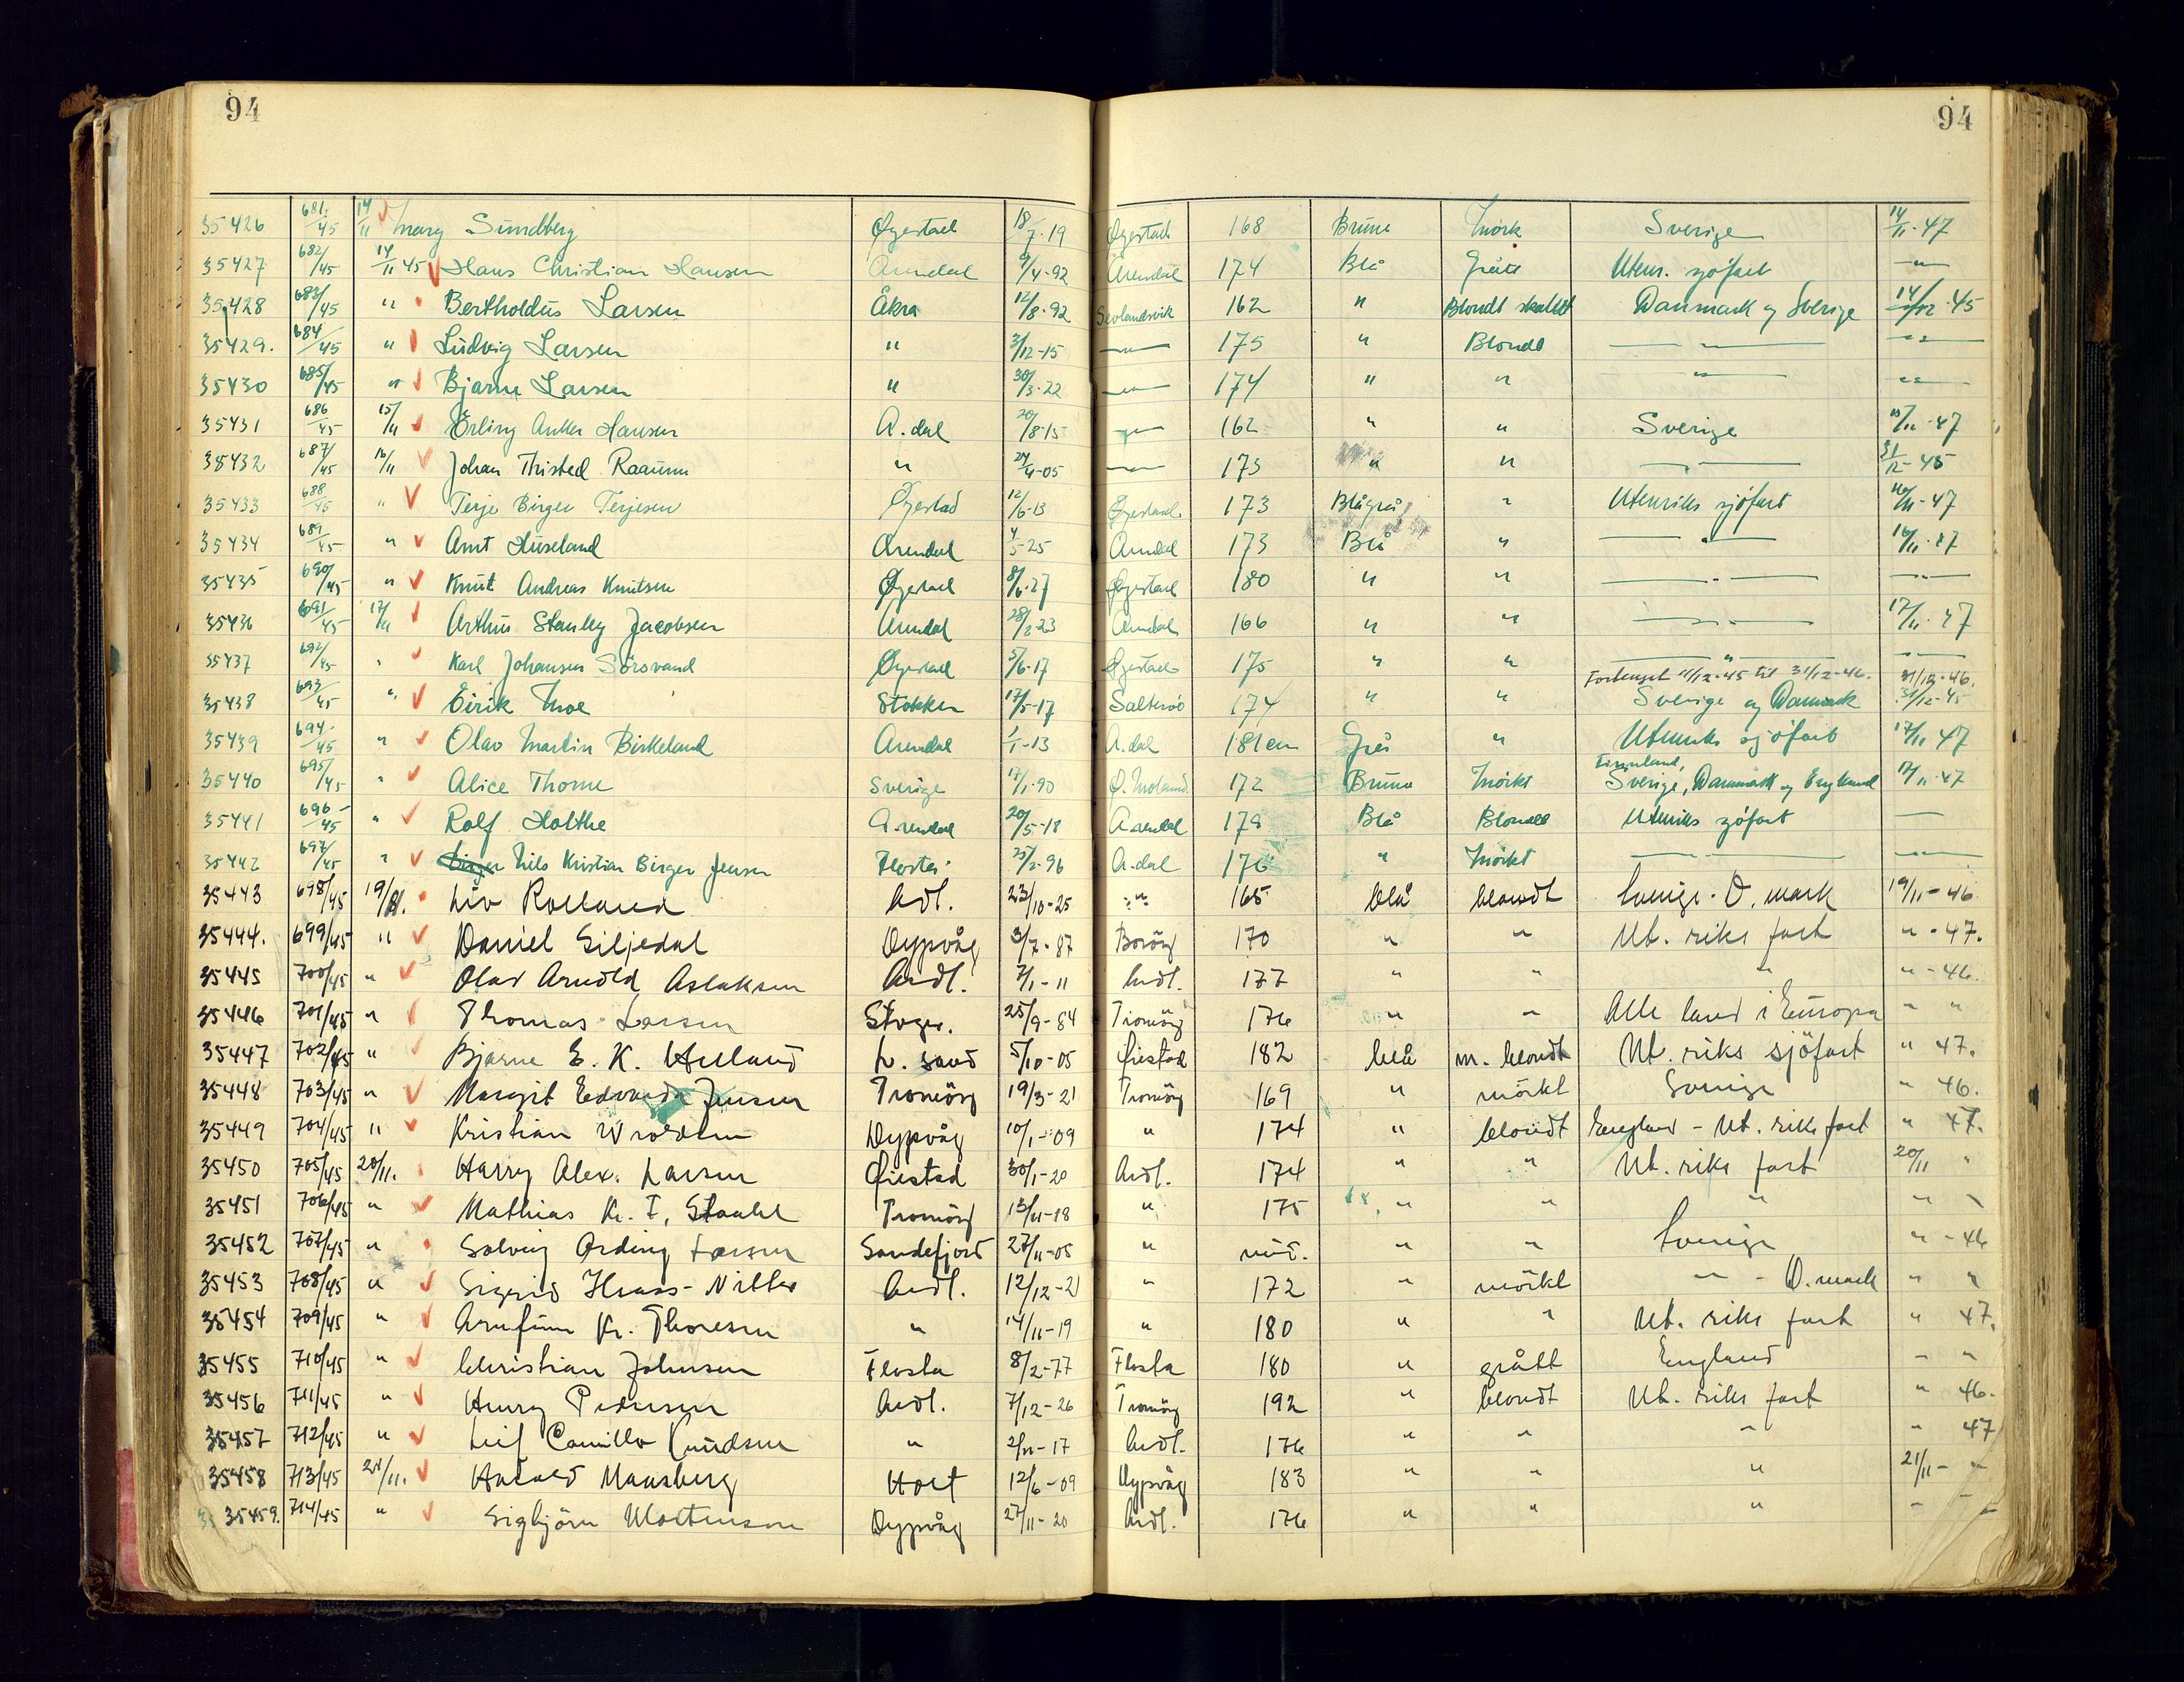 94 94
35426 681/45 14/11 Mary Sundberg Øyestad 18/7-19 Øyestad 168 Brune Mörk Sverige 14/11-47
35427 682/45 14/11 45 Hans Christian Hansen Arendal 9/4-92 Arendal 174 Blå Grått Utenr. sjöfart —"—
35428 683/45 " Bertholdus Larsen Åkra 12/8-92 Sevlandsvik 162 " Blondt skallet Danmark og Sverige 14/12-45
35429. 684/45 " Ludvig Larsen " 3/12-15 —"— 175 " Blondt —"— —"—
35430 685/45 " Bjarne Larsen " 30/3-22 —"— 174 " " —"— —"—
35431 686/45 15/11 Erling Anker Hansen A.dal 20/8-15 —"— 162 " " Sverige 15/11-47
35432 687/45 16/11 Johan Thisted Raaum " 24/4-05 —"— 173 " " —"— 31/12-45
35433 688/45 " Terje Birger Terjesen Øyestad 12/6-13 Øyestad 173 Blågrå " Utenriks sjöfart 16/11-47
35434 689/45 " Arnt Huseland Arendal 4/5-25 Arendal 173 Blå " —"— 16/11-47
35435 690/45 " Knut Andreas Knutsen Øyestad 8/6-27 Øyestad 180 " " —"— —"—
35436 691/45 17/11 Arthur Stanley Jacobsen Arendal 28/2-23 Arendal 166 " " —"— 17/11-47
35437 692/45 " Karl Johansen Sörsvand Øyestad 5/6-17 Øyestad 175 " " —"— —"—
Forlenget 11/12-45 til 31/12-46. 31/12-46.
35438 693/45 " Eirik Moe Stokken 17/5-17 Salteröd 174 " " Sverige og Danmark 31/12-45
35439 694/45 " Olav Martin Birkeland Arendal 1/1-13 A.dal 181 cm Grå " Utenriks sjöfart 17/11 47
Finnland,
35440 695/45 " Alice Thorne Sverige 17/1-90 Ø. Moland 172 Brune Mörkt Sverige, Danmark og England 17/11-47
35441 696/45 " Rolf Holthe Arendal 20/5-18 Arendal 179 Blå Blondt Utenriks sjöfart —
35442 697/45 " Birger Nils Kristian Birger Jensen Flosta 25/2-96 A.dal 176 " Mörkt —"— —"—
35443 698/45 19/11. Liv Rolland Adl. 23/10-25 " 165 blå blondt Sverige. D.mark 19/11-46.
35444. 699/45 " Daniel Siljedal Dypvåg 3/7-87 Boröy 170 " " Ut. riks fart " - 47.
35445 700/45 " Olav Arnold Aslaksen Andl. 7/1-11 Andl. 177 " " " " - 46.
35446 701/45 " Thomas Larsen Stvgr. 25/9-84 Tromöy 176 " " Alle land i Europa " "
35447 702/45 " Bjarne E. K. Ulland L. sand 5/10-05 Öiestad 182 blå m. blondt Ut. riks sjöfart " 47.
35448 703/45 " Margit Edvarda Jensen Tromöy 19/3-21 Tromöy 169 " mörkt Sverige " 46.
35449 704/45 " Kristian Dypvåg 10/1-09 " 174 " blondt England - Ut. riks fart " 47.
35450 705/45 20/11. Harry Alex. Larsen Öiestad 30/1-20 Andl. 174 " " Ut. riks fart 20/11 "
35451 706/45 " Mathias Kr. F. Staahl Tromöy 13/11-18 " 175 " " " " "
35452 707/45 " Solveig Arding Larsen Sandefjord 27/11-05 " mid. " " Sverige " - 46
35453 708/45 " Sigrid Huass-Nitter Andl. 12/12-21 " 172 " mörkt " - D.mark " "
35454 709/45 " Arnfinn Kr. Thoresen " 14/11-19 " 180 " " Ut. riks fart " 47.
35455 710/45 " Christian Johnsen Flosta 8/2-77 Flosta 180 " grått England " "
35456 711/45 " Henry Pedersen Andl. 7/12-26 Tromöy 192 " blondt Ut. riks fart " 46.
35457 712/45 " Leif Camillo Knudsen " 2/11-17 Andl. 176 " " " " 47
35458 713/45 21/11. Harald Mausberg Holt 12/6-09 Dypvåg 183 " " " 21/11- "
35459. 714/45 " Sigbjörn Mortensen Dypvåg 27/11-20 Andl. 176 " " " " "